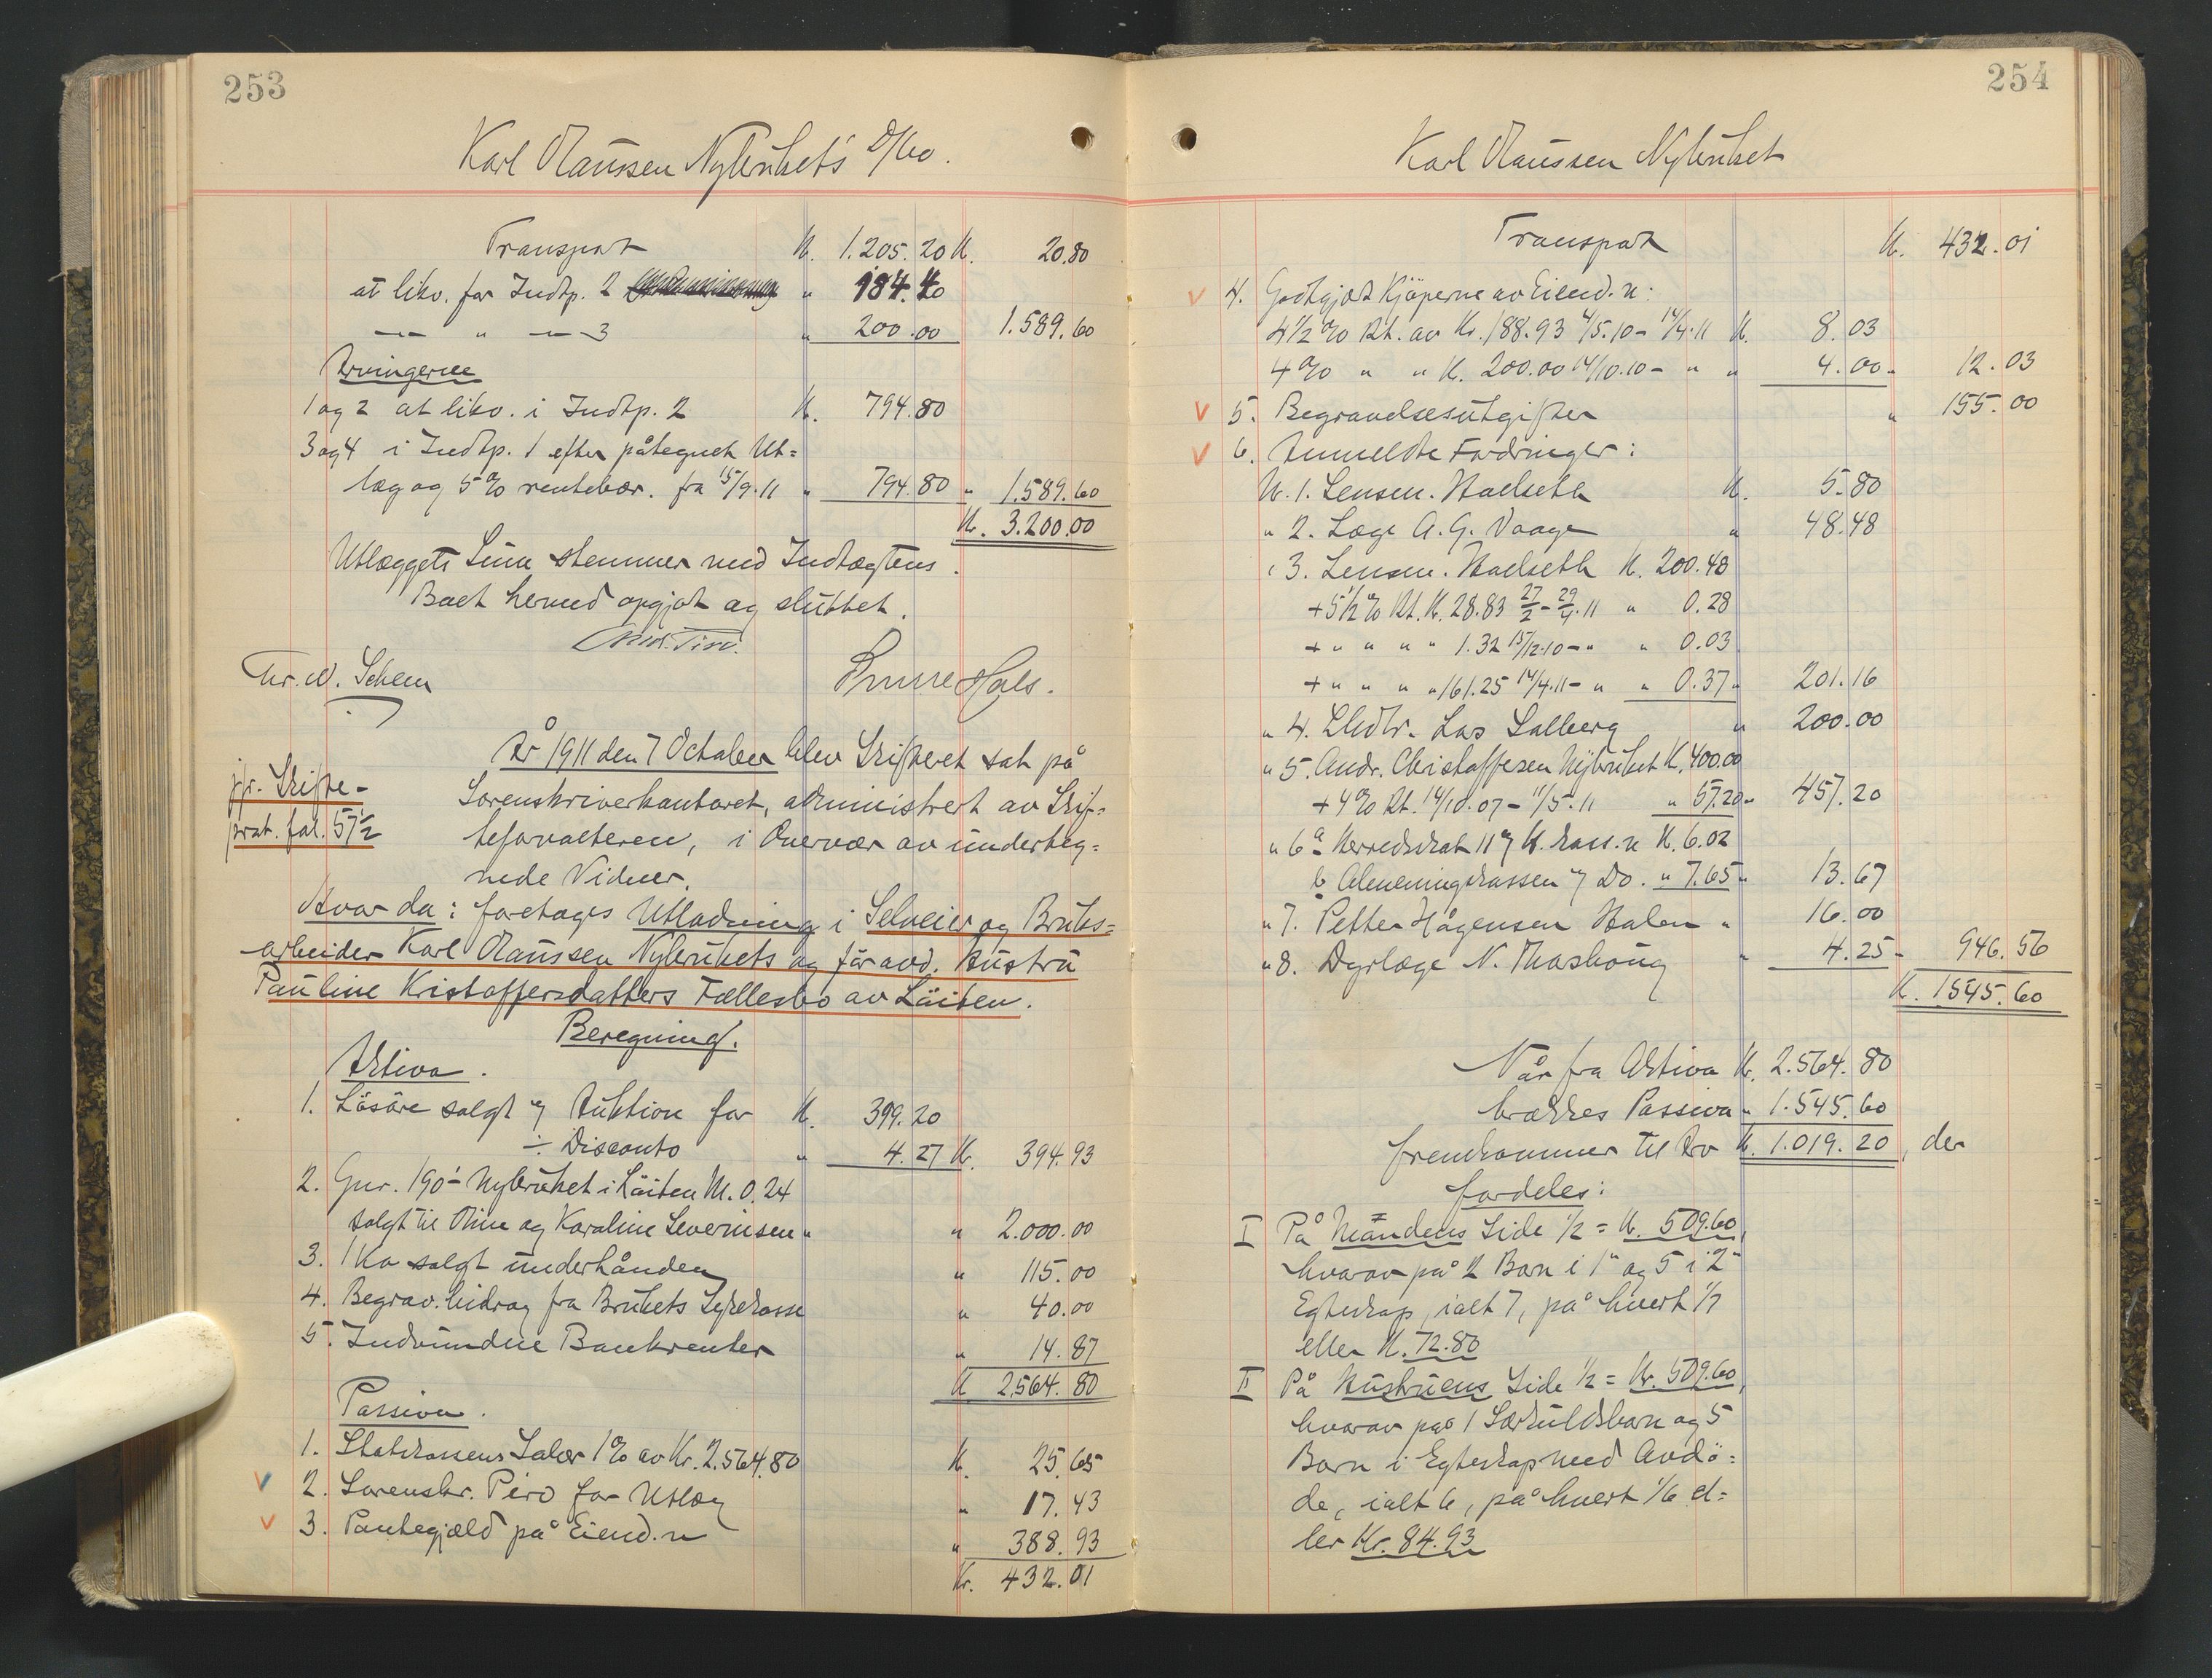 253
Karl Olaussen Nybrukets D/bo.
Transport K. 1.205.20 K. 20.80
at likv. for Indtp. 2 " 184.40
— " — 3 " 200.00 1.589.60
Arvingerne
1 og 2 at likv. i Indtp. 2 K. 794.80
3 og 4 i Indtp. 1 efter påtegnet Ut=
læg og 5% rentebær. fra 15/9.11 " 794.80 " 1.589.60
Kr. 3.200.00
Utlæggets Sum stemmer med Indtægtens.
Boet hermed opgjort og sluttet.
Chr. N. Schem
År 1911 den 7 October blev Skifteret sat på
jfr. Skifte-
prot. fol. 572
Sorenskriverkontoret, administrert av Skif=
teforvalteren, i Overvær av underteg=
nede Vidner.
Hvor da: foretages Utlodning i Selveier og Bruks=
arbeider Karl Olaussen Nybrukets og før avd. Hustru
Pauline Kristoffersdatters Fællesbo av Løiten.
Beregning.
Aktiva.
1. Løsøre solgt v Auktion for K. 399.20
÷ Disconto " 4.27 K. 394.93
2. Gnr. 190 Nybruket i Løiten M. 0.24
solgt til Oline og Karoline Severinsen " " 2.000.00
3. 1 Ko solgt underhånden " 115.00
4. Begrav.bidrag fra Brukets Sykekasse " 40.00
5. Indvundne Bankrenter " 14.87
K 2.564.80
Passiva.
1. Statskassens Salær 1% av Kr. 2.564.80 K. 25.65
2. Sorenskr. Piro for Utlæg " 17.43
3. Pantegjæld på Eiend.n " 388.93
Kr. 432.01
254
Karl Olaussen Nybruket
Transport K. 432.01
4. Godtgjort Kjøperne av Eiend.n:
4½% Rt. av Kr. 188.93 4/5.10 - 14/4.11 K. 8.03
4% " " K. 200.00 14/10.10 - " " 4.00 " 12.03
5. Begravelsesutgifter " 155.00
6. Anmeldte Fordringer:
N. 1. Lensm. Hoelseth K. 5.80
" 2. Læge A. G. Vaage " 48.48
" 3. Lensm. Hoelseth K. 200.48
+ 5½% Rt. K. 28.83 27/2 - 29/4.11 " 0.28
+ " " " " 1.32 15/12.10 - " " 0.03
+ " " " " 161.25 14/4.11 - " " 0.37 " 201.16
" 4. Lhdlr. Lars Salberg " 200.00
" 5. Andr. Christoffersen Nybruket K. 400.00
+ 4% Rt. 14/10.07 - 11/5.11 " 57.20 " 457.20
" 6 a Herredskat 11 v H. kass.n K. 6.02
b Almenningskassen v Do. " 7.65 " 13.67
" 7. Petter Hågensen Halen " 16.00
" 8. Dyrlæge N. Thoshaug " 4.25 " 946.56
K. 1545.60
Når fra Aktiva Kr. 2.564.80
trækkes Passiva " 1.545.60
fremkommer til Arv K. 1.019.20, der
fordeles:
I På Mandens Side ½ = K. 509.60,
hvorav på 2 Barn i 1" og 5 i 2"
Egteskap, ialt 7, på hvert 1/7
eller K. 72.80
II På Hustruens Side ½ = Kr. 509.60,
hvorav på 1 Særkuldsbarn og 5
Barn i Egteskap med Avdø=
de, ialt 6, på hvert 1/6 el=
ler Kr. 84.93